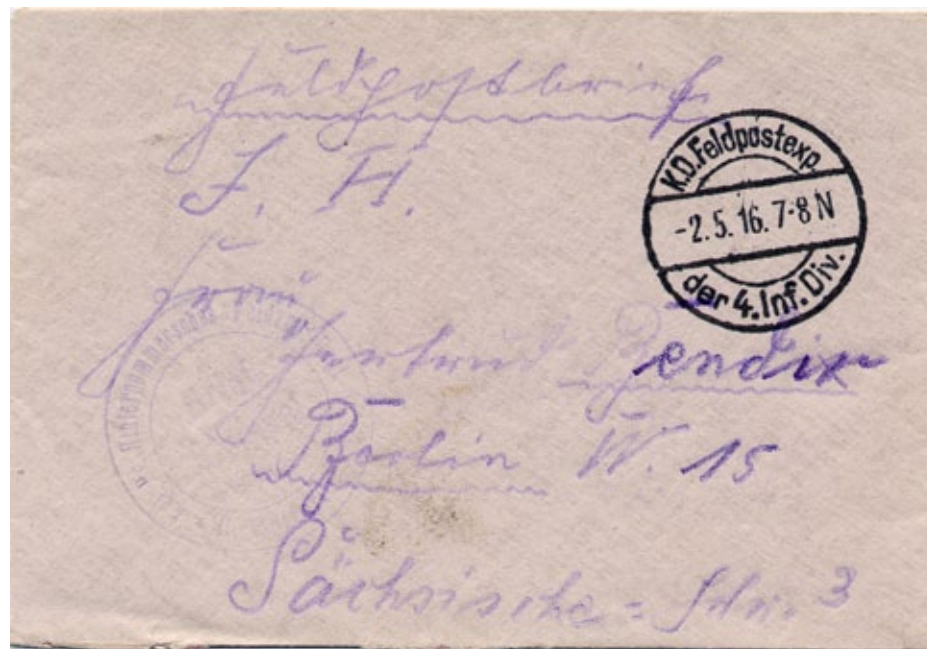 Feldpostbrief
J. H.
K.D. Feldpostexp.
-2.5.16. 7-8 N
der 4. Inf. Div.
Frau
Gertrud Bendix
Berlin W. 15
Sächsische-Str. 3